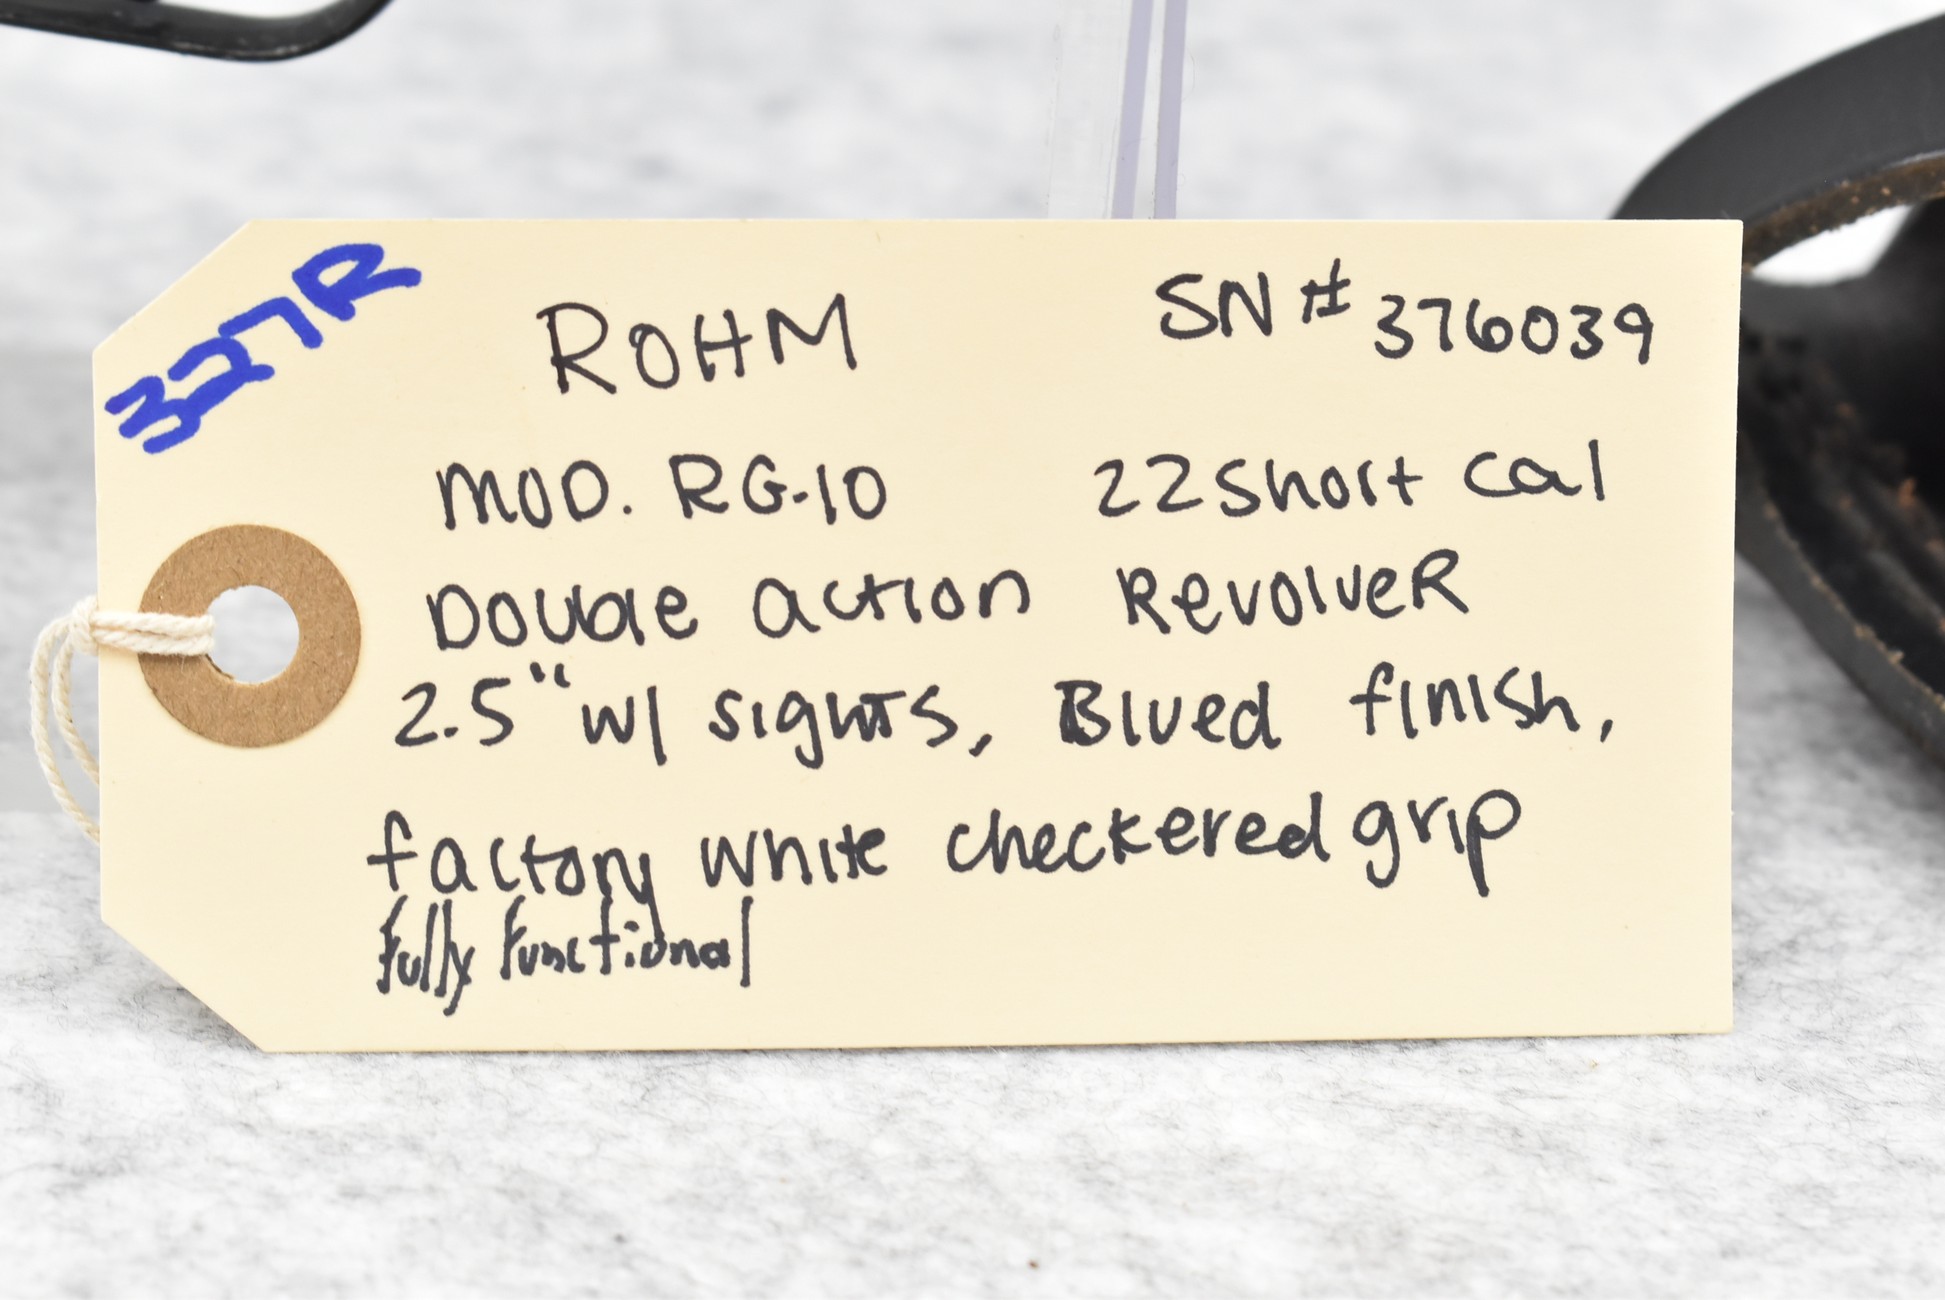 327R
ROHM SN # 376039
MOD. RG-10 22 Short Cal
Double action RevolveR
2.5" w/ sights, Blued finish,
factory white checkered grip
fully functional